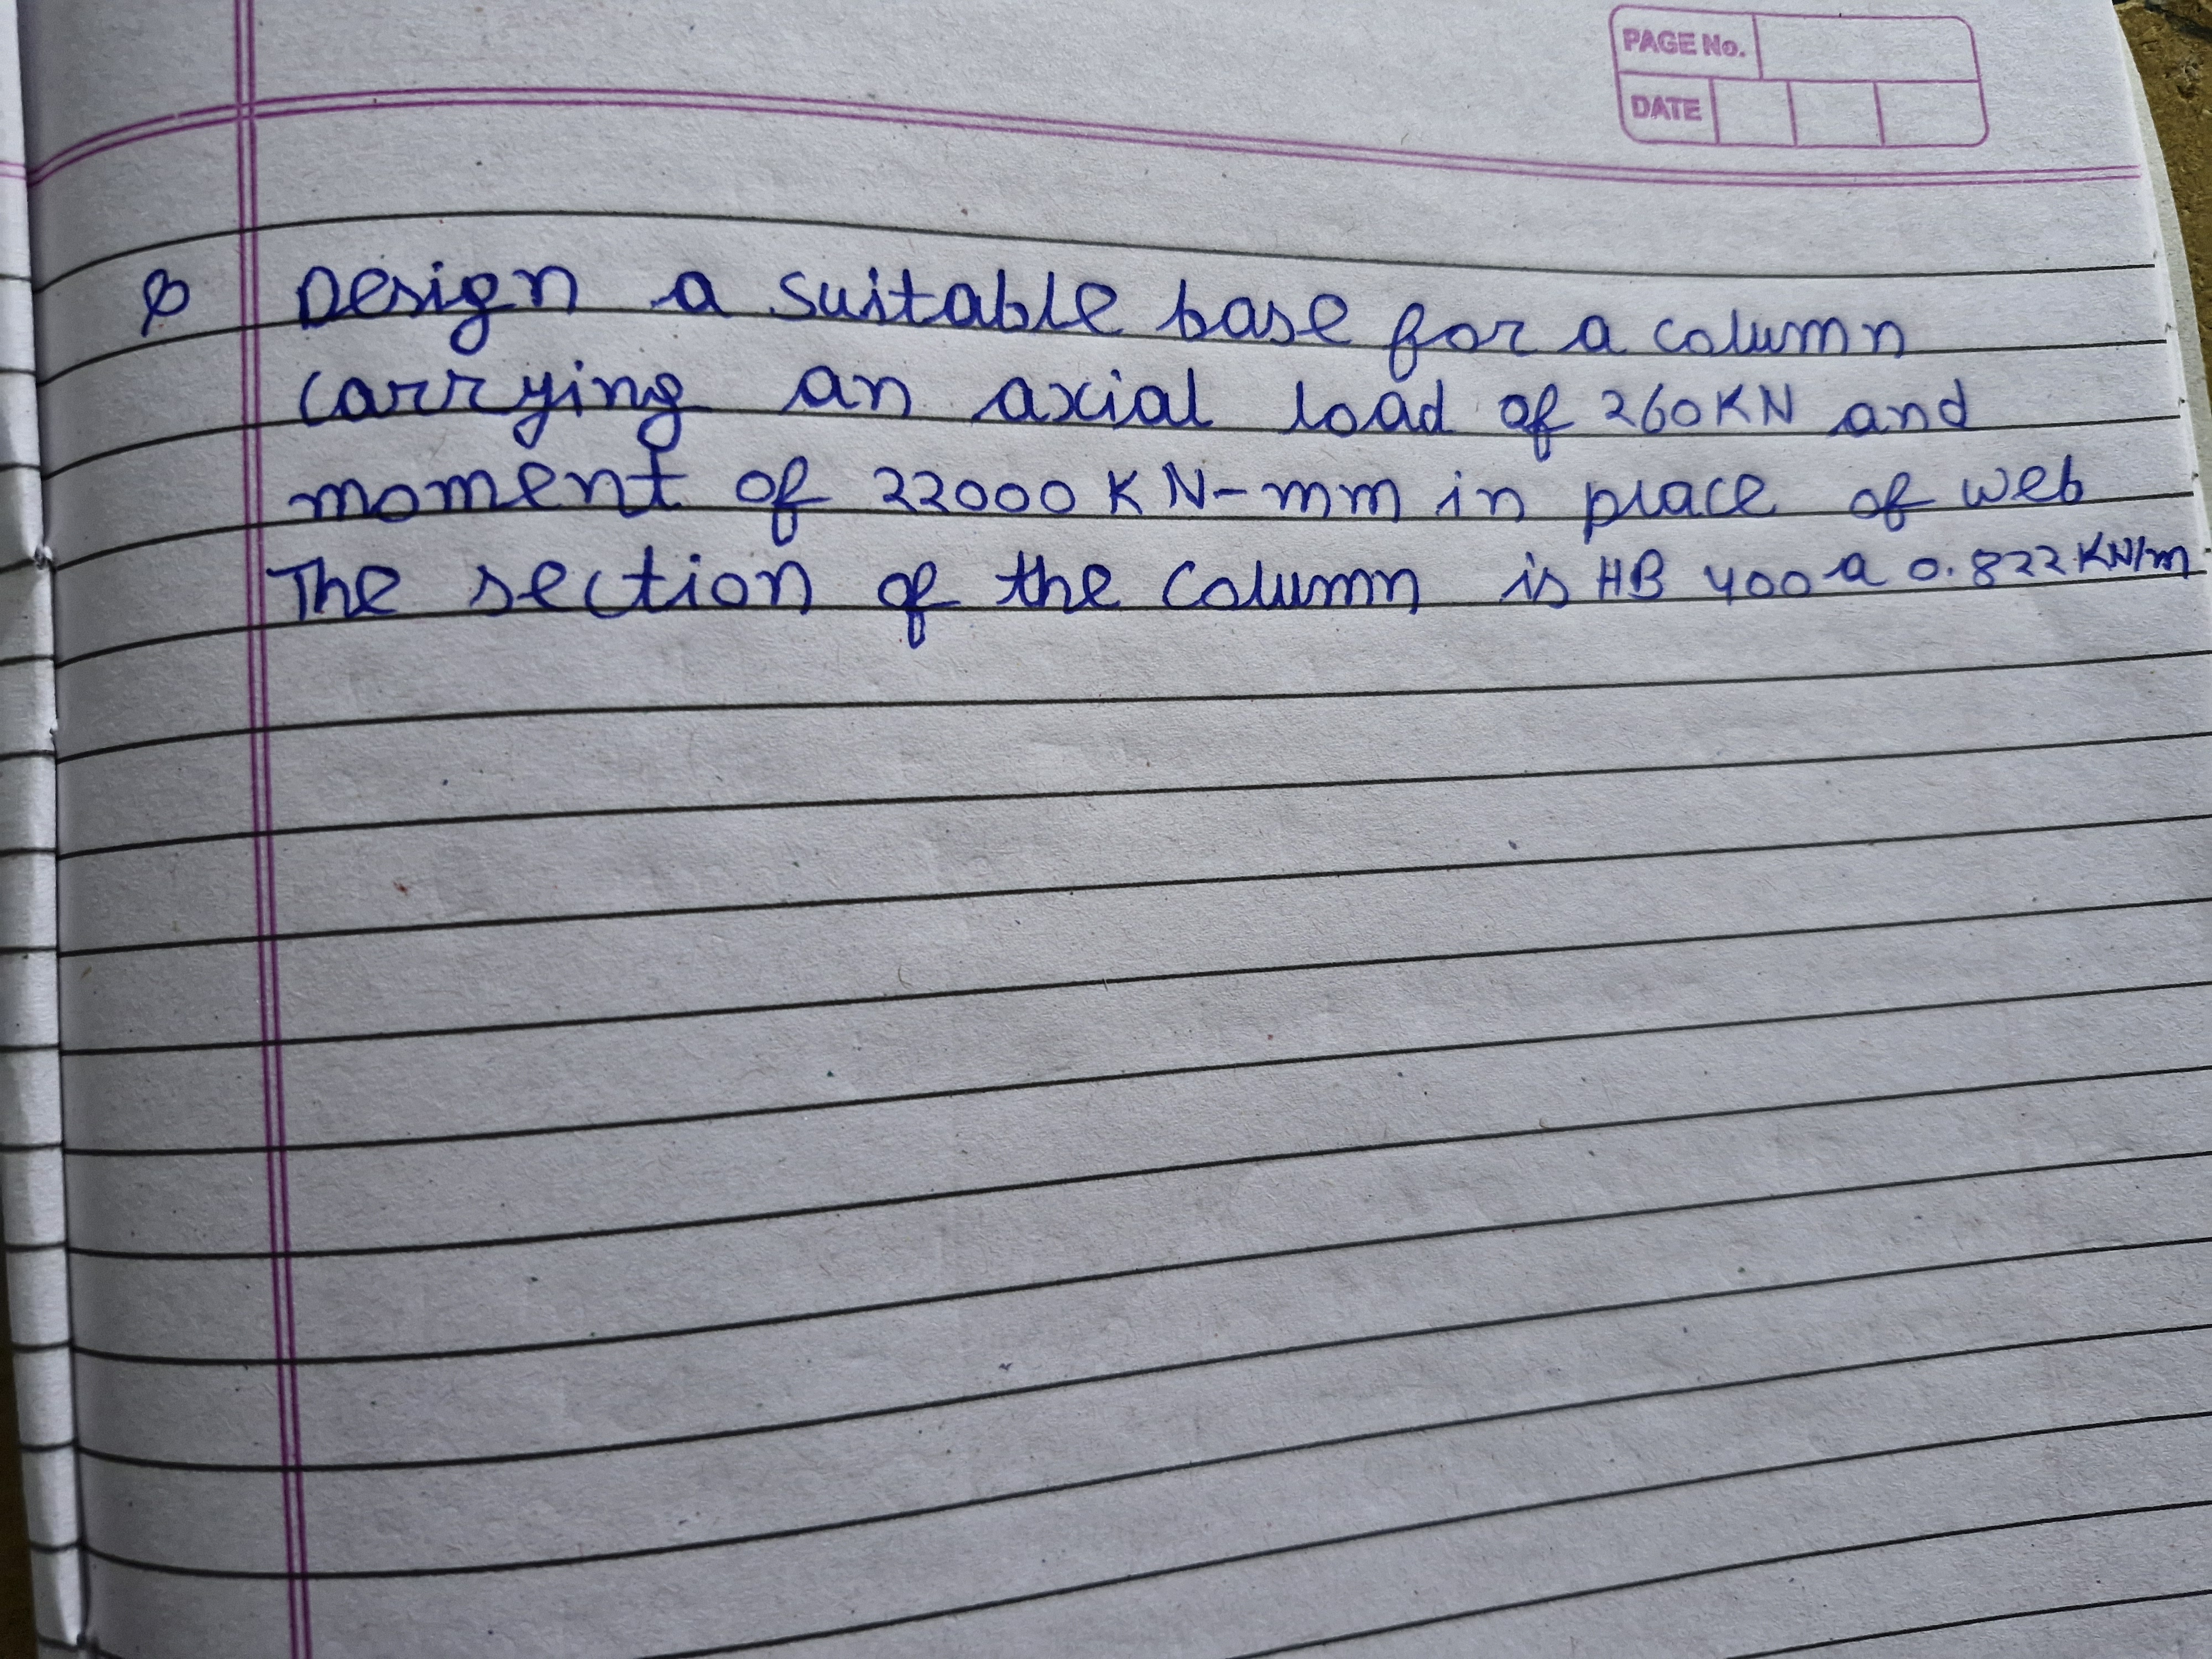 PAGE No.
DATE
Q Design a suitable base for a column
carrying an axial load of 260KN and
moment of 22000 KN-mm in place of web
The section of the column is HB 400 a 0.822 KN/m